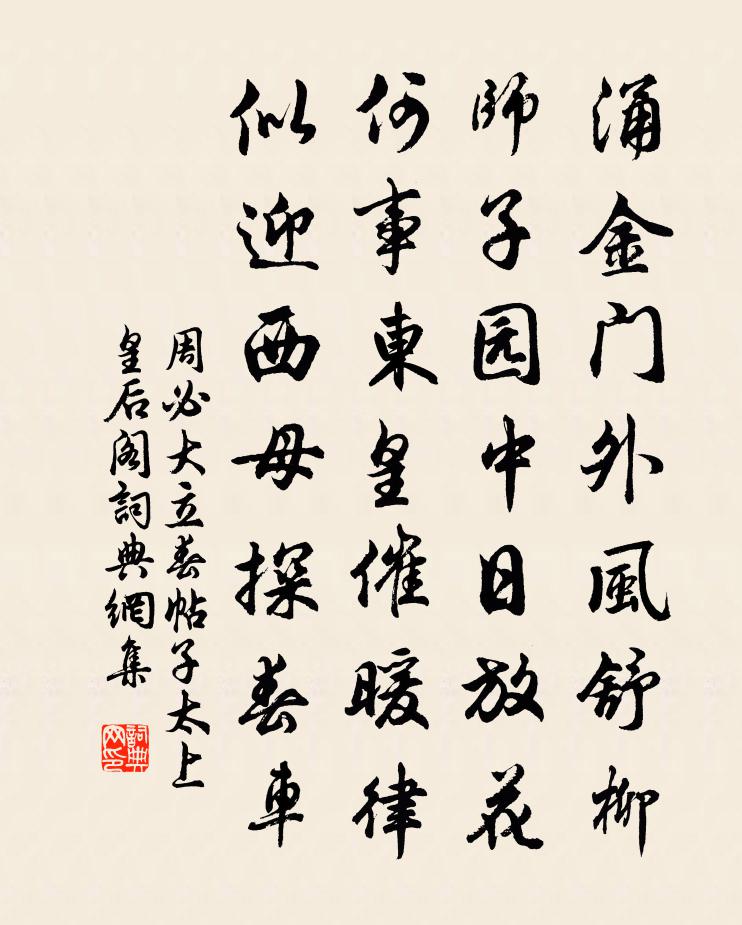 涌金门外風舒柳
師子园中日放花
何事東皇催暖律
似迎西母探春車
周必大立春帖子太上
皇后阁詞典網集
詞典网印